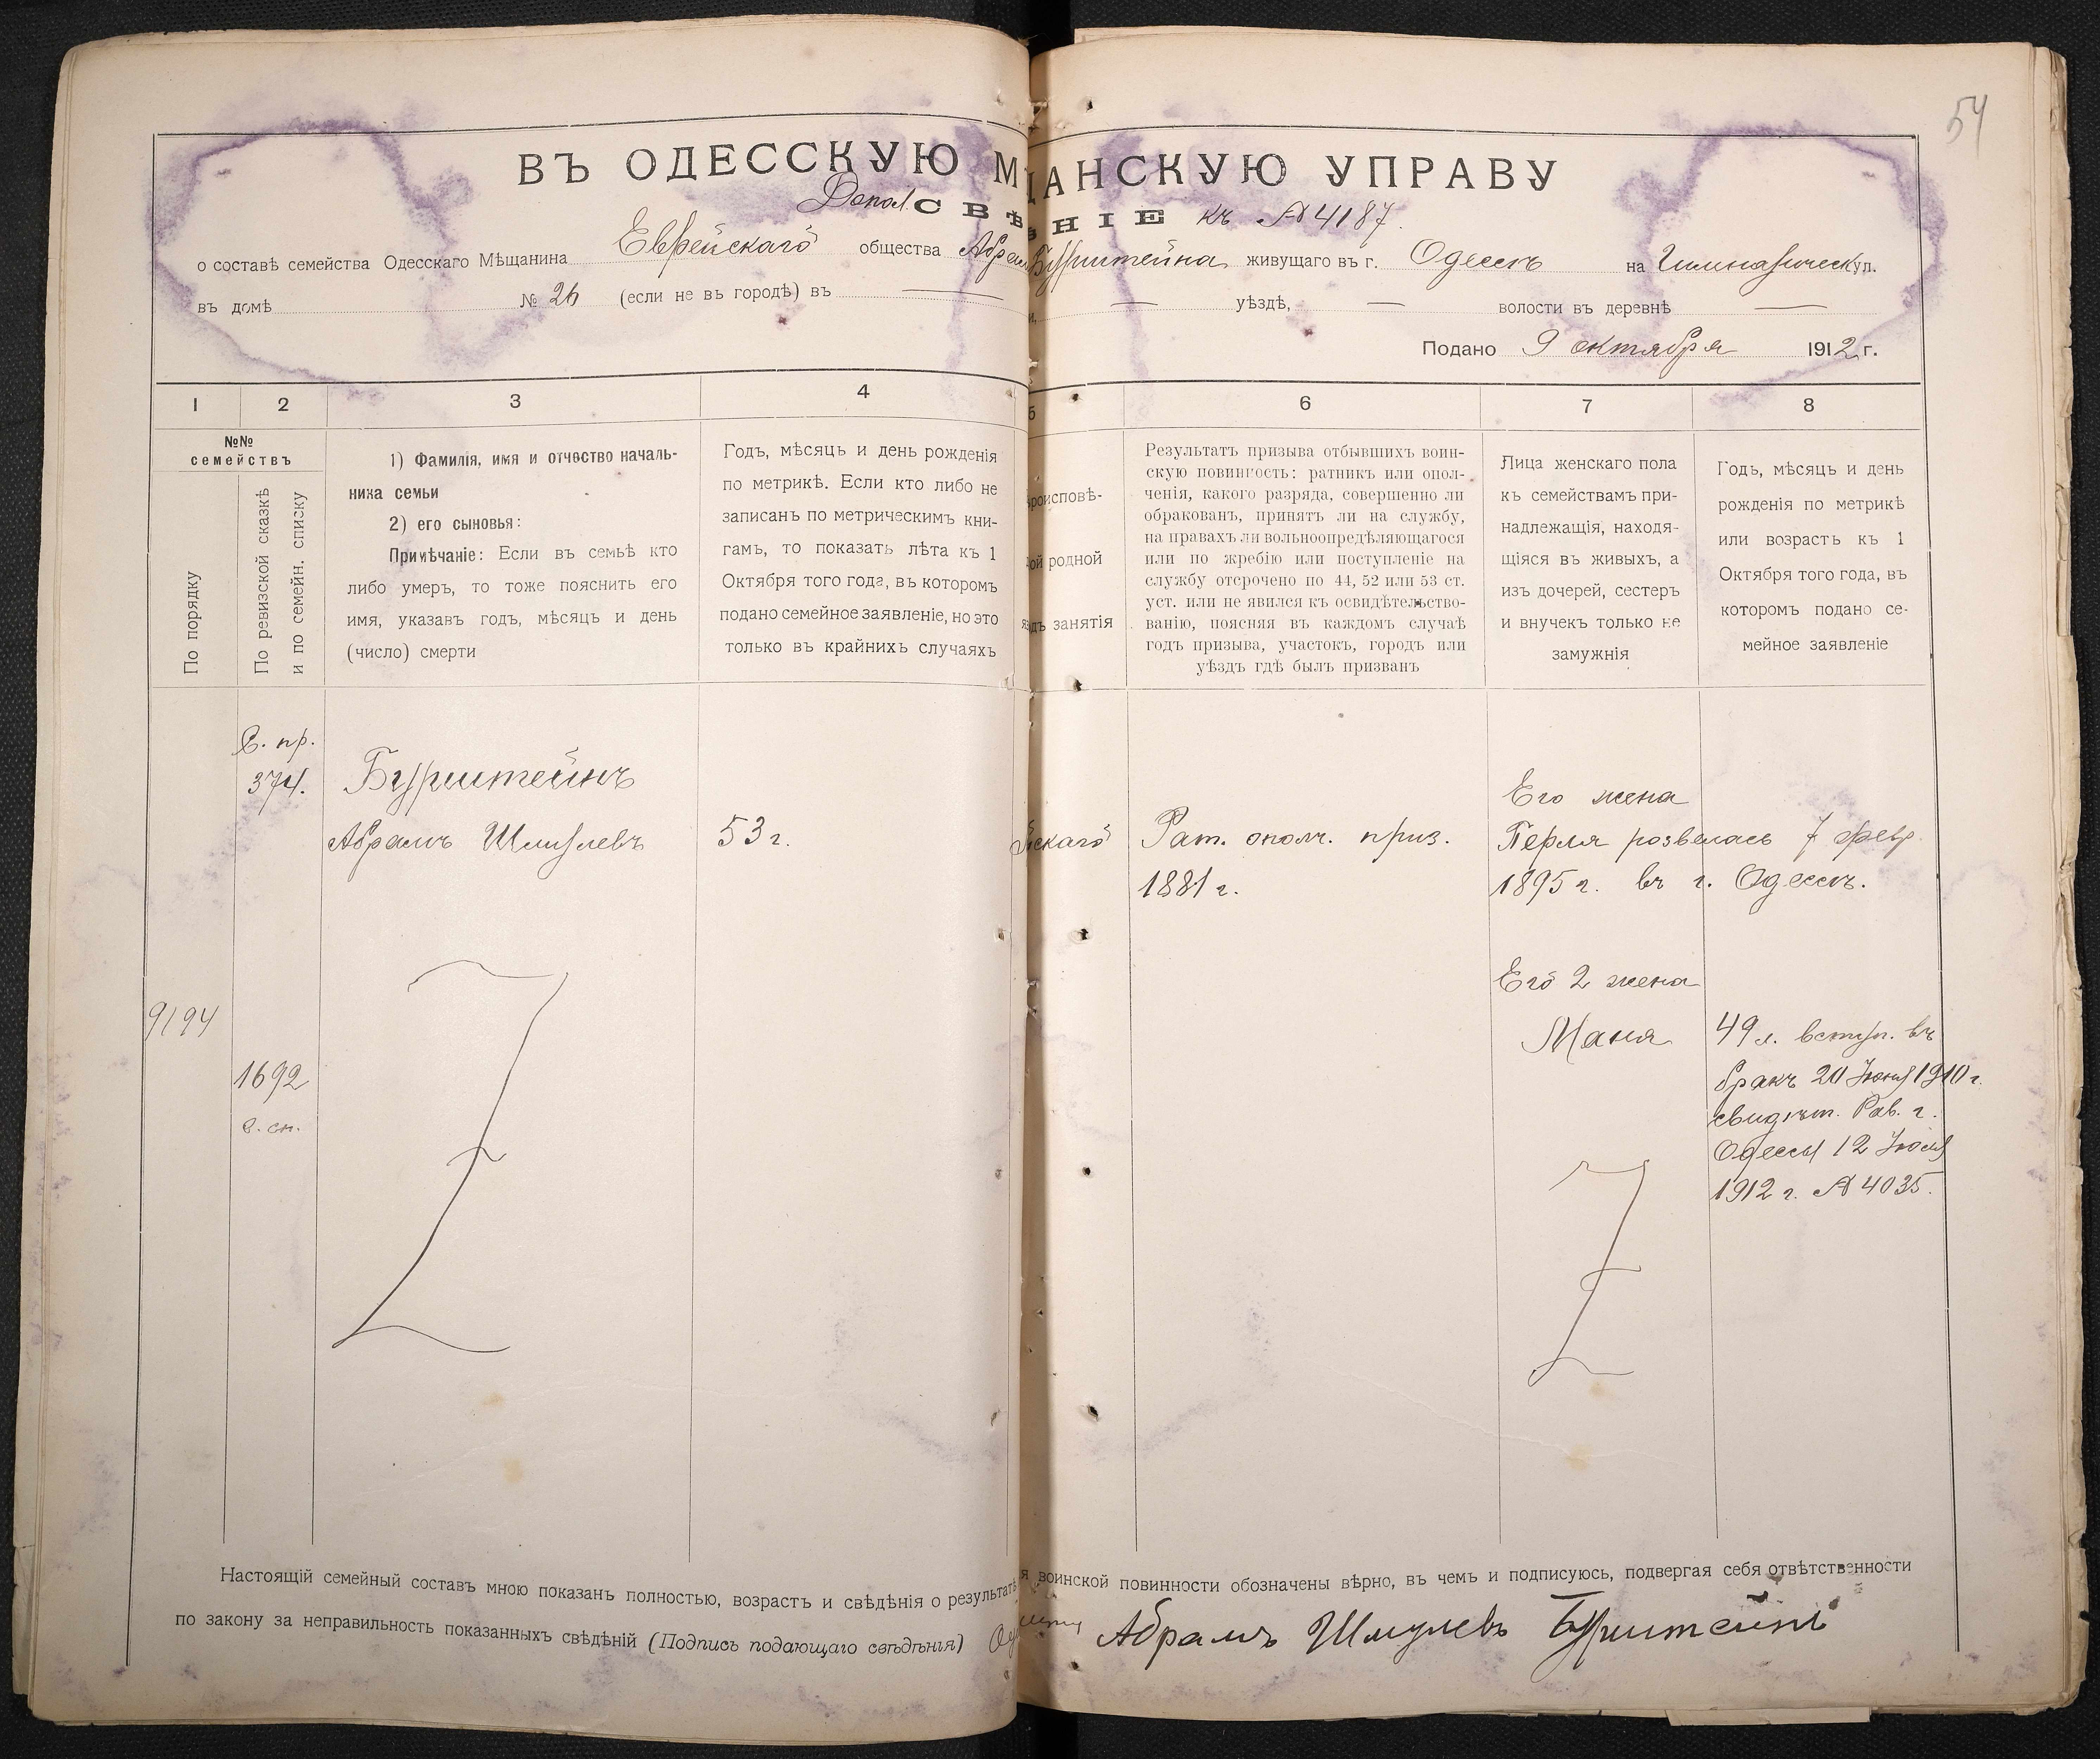 54
ВЪ ОДЕССКУЮ М ЩАНСКУЮ УПРАВУ
Допол. СВѢ НІЕ къ № 4187.
о составѣ семейства Одесскаго Мѣщанина Еврейскаго общества Абрам Бурштейна живущаго въ г. Одессѣ на Гимназическ ул.
въ домѣ № 26 (если не въ городѣ) въ — и, — уѣздѣ, — волости въ деревнѣ —
Подано 9 октября 1912 г.
1 2 3 4 5 6 7 8
№№ семействъ
По порядку
По ревизской сказкѣ
и по семейн. списку
1) Фамилія, имя и отчество началь-
ника семьи
2) его сыновья:
Примѣчаніе: Если въ семьѣ кто
либо умеръ, то тоже пояснить его
имя, указавъ годъ, мѣсяцъ и день
(число) смерти
Годъ, мѣсяцъ и день рожденія
по метрикѣ. Если кто либо не
записанъ по метрическимъ кни-
гамъ, то показать лѣта къ 1
Октября того года, въ которомъ
подано семейное заявленіе, но это
только въ крайнихъ случаяхъ
роисповѣ-
ой родной
одъ занятія
Результатъ призыва отбывшихъ воин-
скую повинность: ратникъ или опол-
ченія, какого разряда, совершенно ли
обракованъ, принятъ ли на службу,
на правахъ ли вольноопредѣляющагося
или по жребію или поступленіе на
службу отсрочено по 44, 52 или 53 ст.
уст. или не явился къ освидѣтельство-
ванію, поясняя въ каждомъ случаѣ
годъ призыва, участокъ, городъ или
уѣздъ гдѣ былъ призванъ
Лица женскаго пола
къ семействамъ при-
надлежащія, находя-
щіяся въ живыхъ, а
изъ дочерей, сестеръ
и внучекъ только не
замужнія
Годъ, мѣсяцъ и день
рожденія по метрикѣ
или возрастъ къ 1
Октября того года, въ
которомъ подано се-
мейное заявленіе
С. пр.
374.
Бурштейнъ
Абрамъ Шмулевъ 53 г. йскаго Рат. ополч. приз.
1881 г.
Его жена
Перля розвелась 7 февр.
1895 г. въ г. Одессѣ.
Его 2 жена
Маня
49 л. вступ. въ
бракъ 20 Іюня 1910 г.
свидѣт. Рав. г.
Одессы 12 Іюля
1912 г. № 4035.
9194
1692
с. сп.
Настоящій семейный составъ мною показанъ полностью, возрастъ и свѣдѣнія о результатѣ я воинской повинности обозначены вѣрно, въ чемъ и подписуюсь, подвергая себя отвѣтственности
по закону за неправильность показанныхъ свѣдѣній (Подпись подающаго свѣдѣнія) Абрамъ Шмулевъ Бурштейнъ